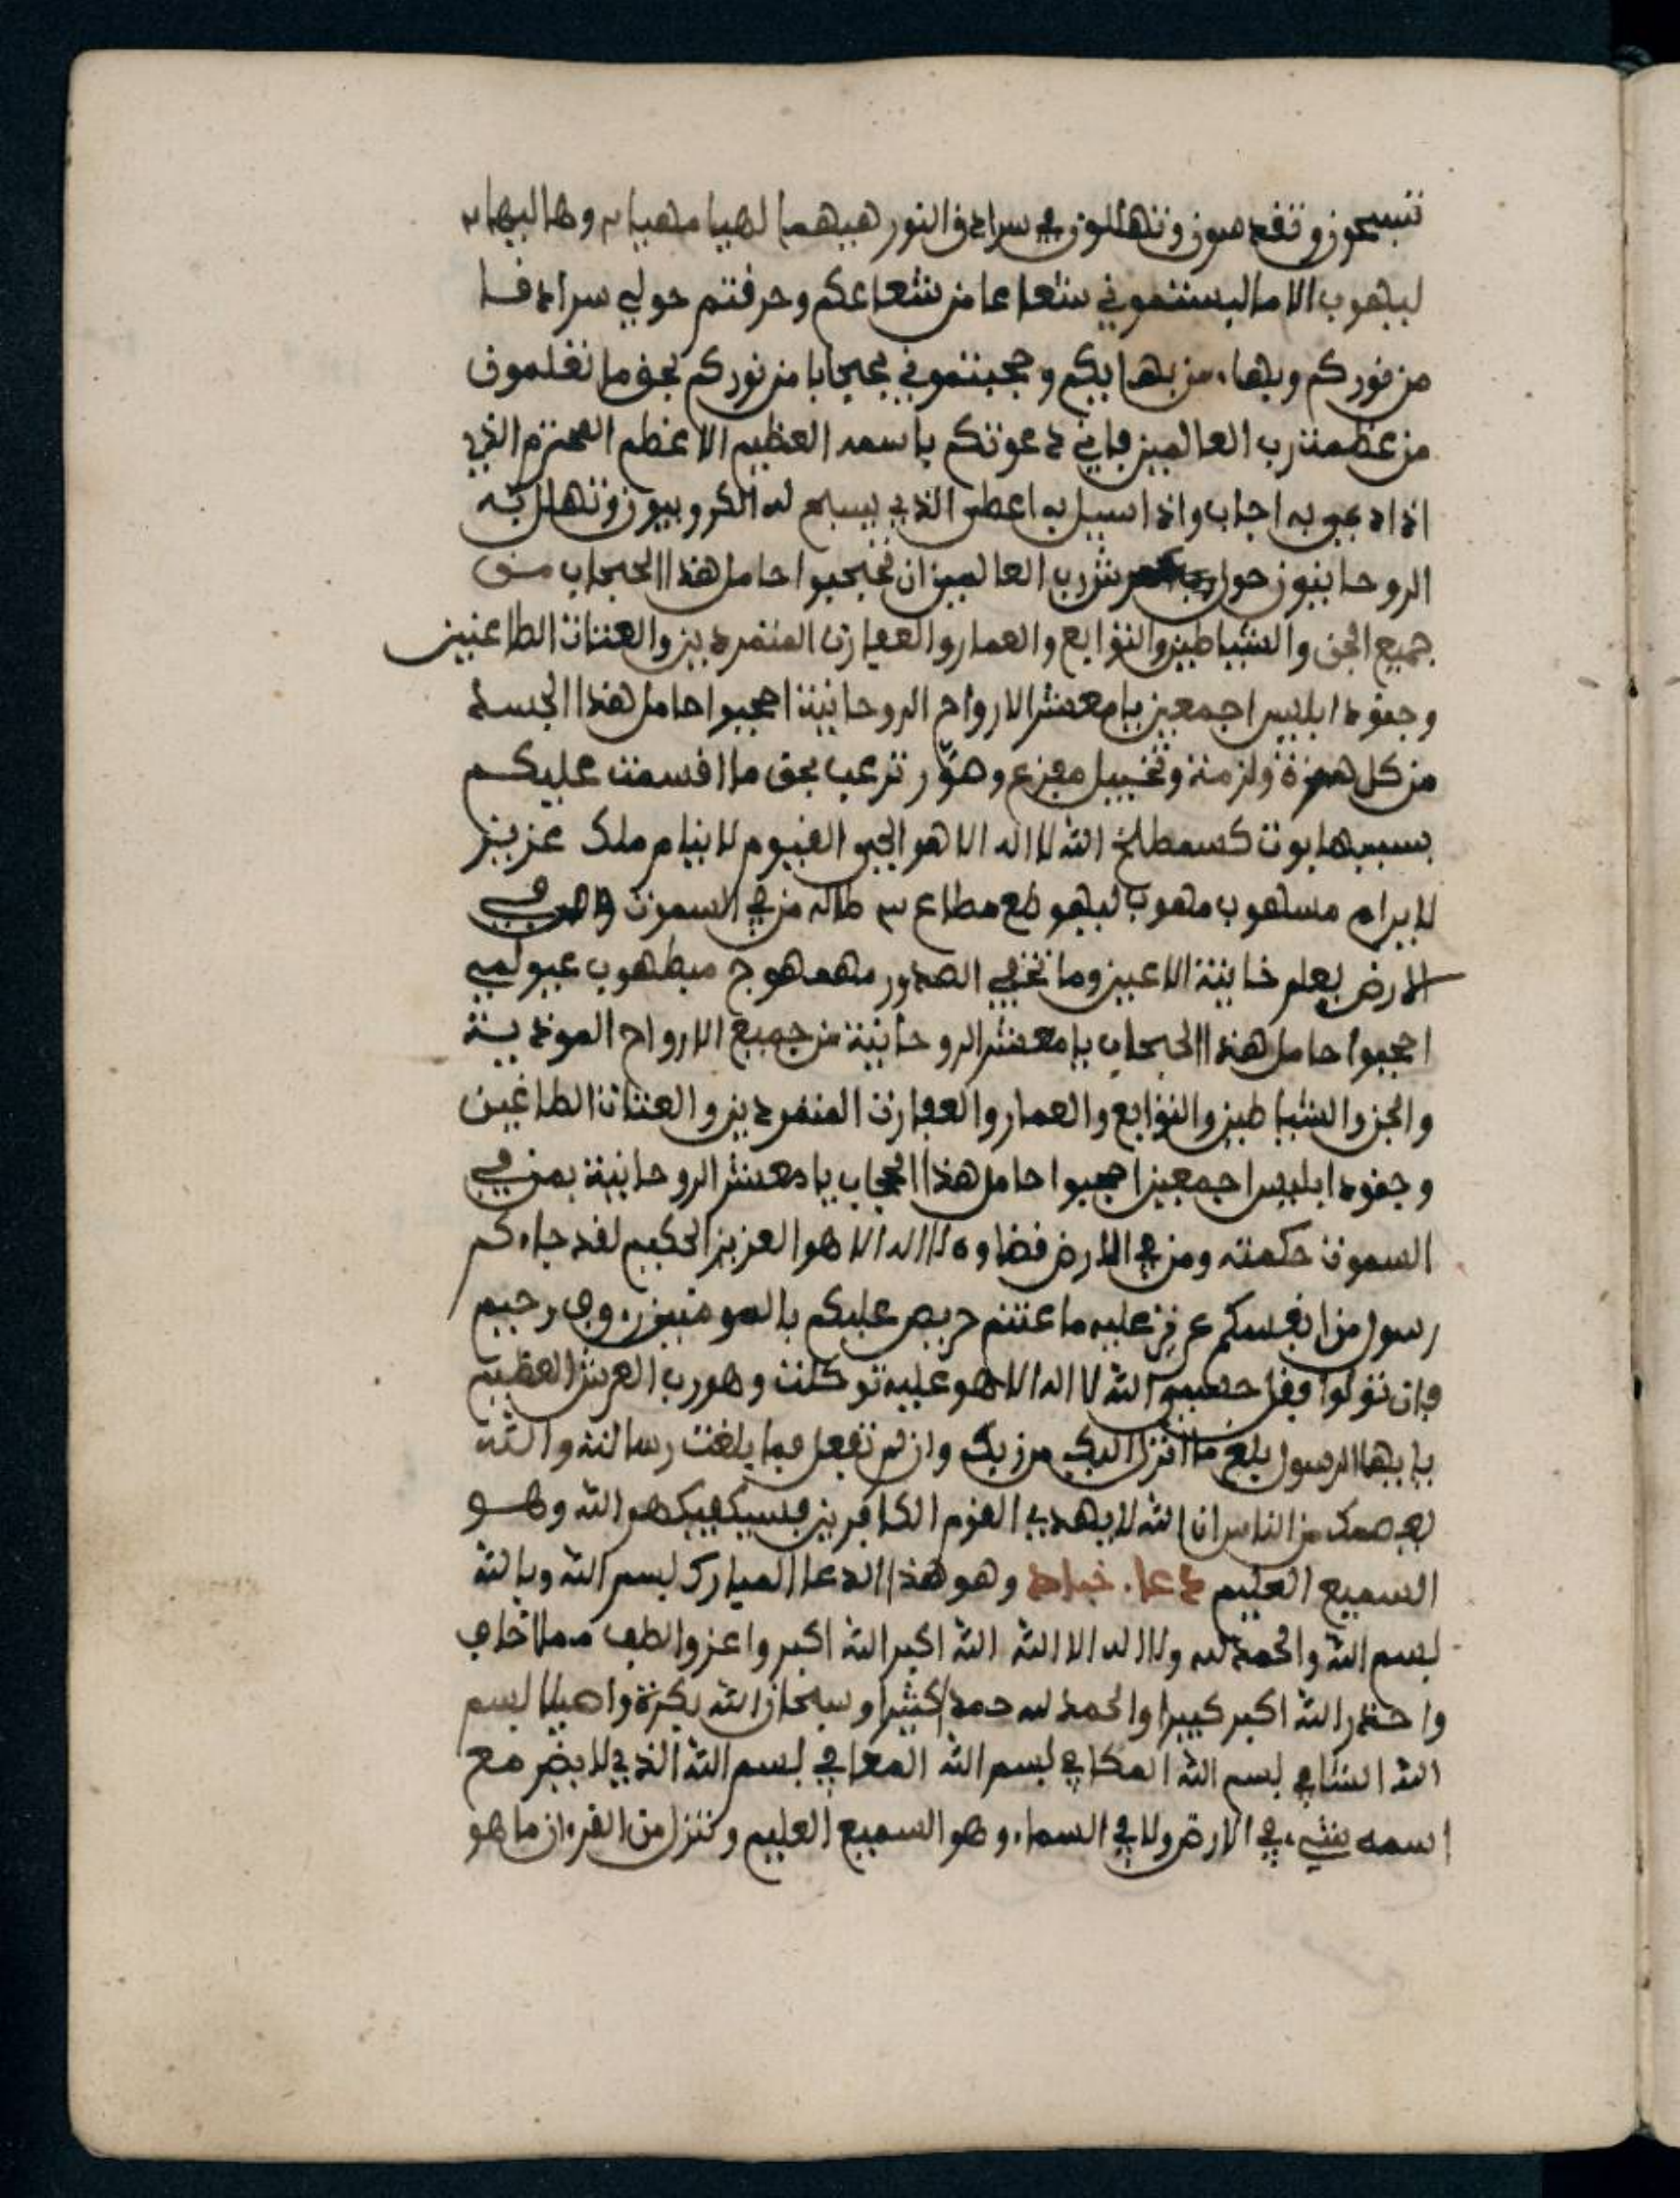 تسبحون وتقدسون وتهللون في سرادق النور هيهما لهيا مهيا وها ليها
ليهوب الا ما البستموني شعاعا من شعاعكم وحرفتم حولي سرادفا
من نوركم وبهاء من بهايكم وحجبتموني بحجابا من نوركم بحق ما تعلمون
من عظمت رب العالمين فاني دعوتكم باسمه العظيم الاعظم المحترم الذي
اذا دعي به اجاب واذا سيل به اعطى الذي يسبح له الكروبيون وتهلل به
الروحانيون حول عرش رب العالمين ان تحجبوا حامل هذا الحجاب من
جميع الجن والشياطين والتوابع والعمار والعفارت المتمردين والعتات الطاغيين
وجنود ابليس اجمعين يا معشر الارواح الروحانية احجبوا حامل هذا الجسد
من كل همزة ولزمة وتخييل مفزع وهور ترعب بحق ما اقسمت عليكم
بسبيهابوت كسمطلخ الله لا اله الا هو الحي القيوم لا ينام ملك عزيز
لا يرام مسلهوب مهوب ليهو مطاع من في السموت في
الارض يعلم خاينة الاعين وما تخفي الصدور مهمهوج ميطهوب
احجبوا حامل هذا الحجاب يا معشر الروحانية من جميع الارواح الموذية
والجن والشياطين والتوابع والعمار والعفارت المتمردين والعتات الطاغين
وجنود ابليس اجمعين احجبوا حامل هذا الحجاب يا معشر الروحانية بمن في
السموت حكمته ومن في الارض قضاوه لا اله الا هو العزيز الحكيم لقد جاءكم
رسول من انفسكم عزيز عليه ما عنتم حريص عليكم بالمومنين رءوف رحيم
فان تولوا فقل حسبي الله لا اله الا هو عليه توكلت وهو رب العرش العظيم
يا ايها الرسول بلغ ما انزل اليك من ربك وان لم تفعل فما بلغت رسالته والله
يعصمك من الناس ان الله لا يهدي القوم الكافرين فسيكفيكهم الله وهو
السميع العليم دعاء وهو هذا الدعا المبارك بسم الله وبالله
بسم الله والحمد لله ولا اله الا الله الله اكبر الله اكبر واعز والطف مما اخاف
واحذر الله اكبر كبيرا والحمد لله حمدا كثيرا وسبحان الله بكرة واصيلا بسم
الله الشافي بسم الله الكافي بسم الله المعافي بسم الله الذي لا يضر مع
اسمه شيء في الارض ولا في السماء وهو السميع العليم وننزل من القرءان ما هو